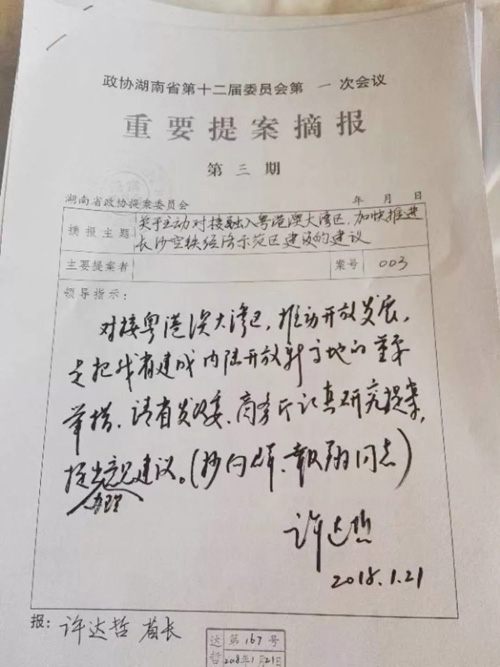 政协湖南省第十二届委员会第 一 次会议
重要提案摘报
第 三 期
湖南省政协提案委员会 年 月 日
摘报主题 关于主动对接融入粤港澳大湾区,加快推进
长沙空铁经济示范区建设的建议
主要提案者 案号 003
领导指示:
对接粤港澳大湾区,推动开放发展,
是把我省建成内陆开放新高地的重要
举措,请省发改委、商务厅认真研究提案,
提出办理意见建议。(抄向群、同志)
许达哲
2018.1.21
报: 许达哲 省长
达哲 第 167 号
2018年1月21日